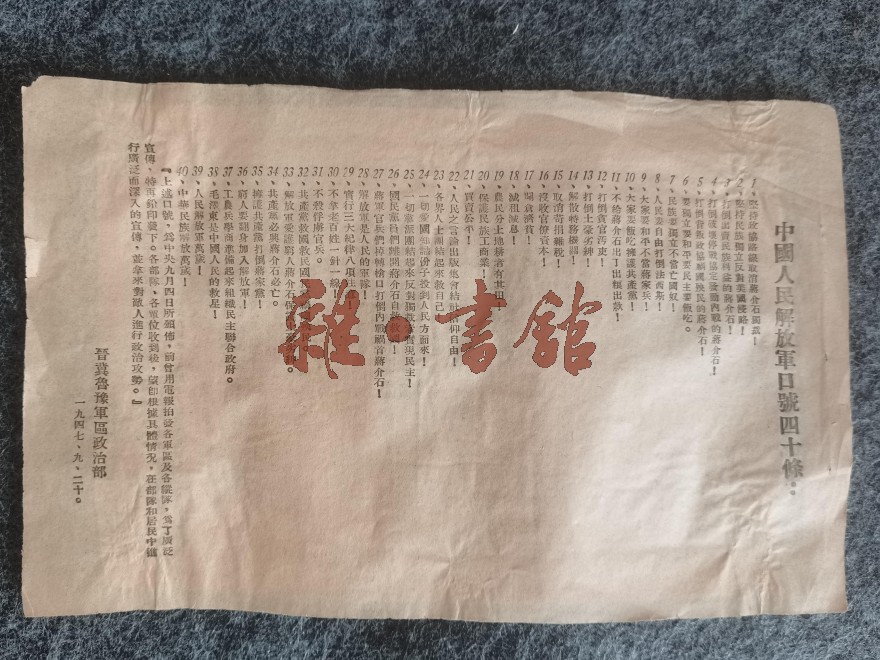 中國人民解放軍口號四十條：
1、堅持政協路線取消蔣介石獨裁！
2、堅持民族獨立反對美國侵略！
3、打倒出賣民族利益的蔣介石！
4、打倒破壞停戰協定發動內戰的蔣介石！
5、打倒背叛政協禍國殃民的蔣介石！
6、要獨立要和平要民主要飯吃。
7、民族要獨立不當亡國奴！
8、人民要自由打倒法西斯！
9、大家要和平不當蔣家兵！
10、大家要飯吃擁護共產黨！
11、不給蔣介石出丁出糧出款！
12、打倒貪官污吏！
13、打倒土豪劣紳！
14、解散特務機關！
15、取消苛捐雜稅！
16、沒收官僚資本！
17、開倉濟貧！
18、減租減息！
19、農民分土地耕者有其田！
20、保護民族工商業！
21、買賣公平！
22、人民之言論出版集會結社信仰自由！
23、各界人士團結起來救自己！
24、一切愛國知識份子投到人民方面來！
25、一切黨派團結起來反對獨裁實現民主！
26、國民黨員們離開蔣介石自救救國！
27、蔣軍官兵們掉轉槍口打倒內戰禍首蔣介石！
28、解放軍是人民的軍隊！
29、實行三大紀律八項注意！
30、不拿老百姓一針一線！
31、不殺俘虜官兵！
32、共產黨救國救民
33、解放軍愛護窮人蔣介石保
34、共產黨必興蔣介石必亡。
35、擁護共產黨打倒蔣家黨！
36、窮人要翻身加入解放軍！
37、工農兵學商準備起來組織民主聯合政府。
38、毛澤東是中國人民的救星！
39、人民解放軍萬歲！
40、中華民族解放萬歲！
『上述口號，為中央九月四日所頒佈，前曾用電報拍發各軍區及各縱隊，為了廣泛
宣傳，特再鉛印發下。各部隊、各單位收到後，望即根據具體情況，在部隊和居民中進
行廣泛而深入的宣傳，並拿來對敵人進行政治攻勢。』
晉冀魯豫軍區政治部
一九四七、九、二十。
雜書館